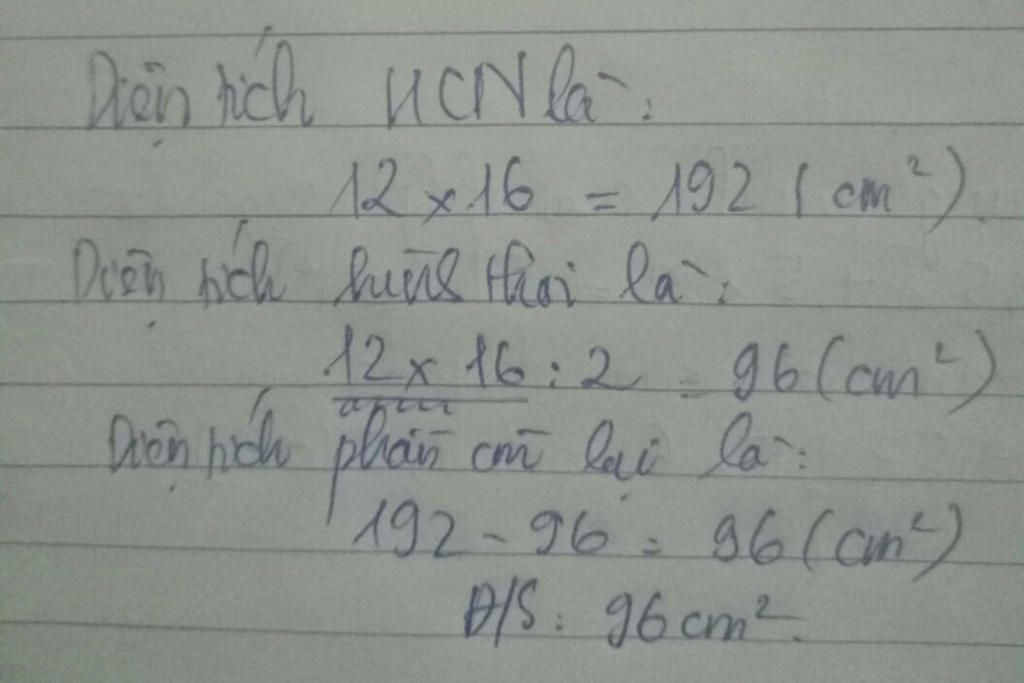 Diện tích HCN là:
12 x 16 = 192 (cm²)
Diện tích hình thoi là:
12 x 16 : 2 = 96 (cm²)
Diện tích phần còn lại là:
192 - 96 = 96 (cm²)
Đ/S: 96 cm².